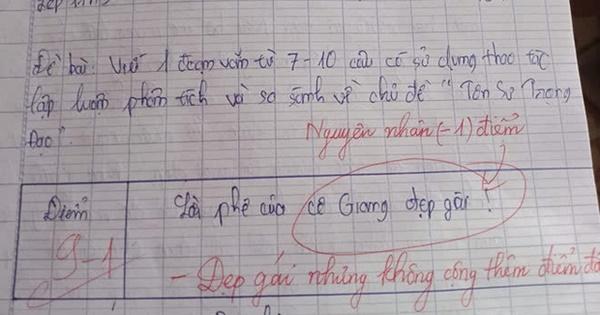 Đề bài: Viết 1 đoạn văn từ 7-10 câu có sử dụng thao tác
lập luận phân tích và so sánh về chủ đề "Tôn Sư Trọng
Đạo".
Nguyên nhân (-1) điểm
Điểm
Lời phê của cô Giang đẹp gái!
9-1
- Đẹp gái nhưng không cộng thêm điểm